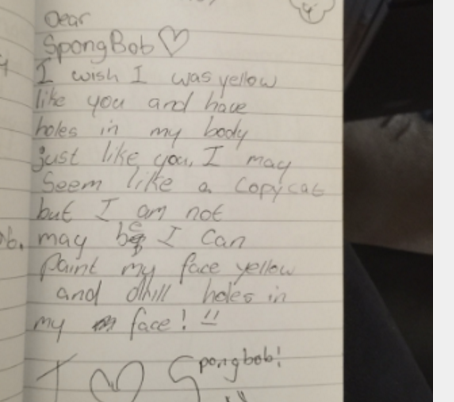 Dear
SpongBob♡
I wish I was yellow
like you and have
holes in my body
just like you, I may
Seem like a Copycat
but I am not
may be I can
paint my face yellow
and drill holes in
my face! !!
I ♡ Spongbob!